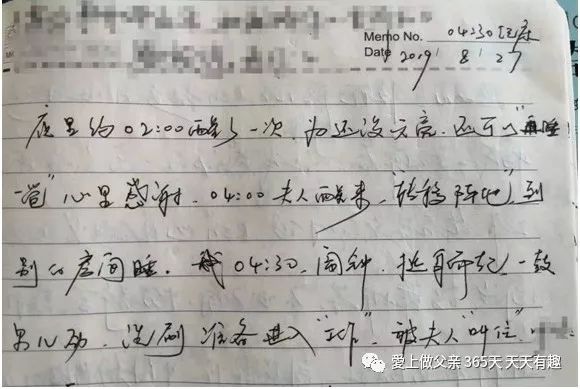 Memo No. 04:30起床
Date 2019 / 8 / 27
夜里约02:00醒了一次,为还没天亮,还可以"再睡
一觉"心里感谢。04:00夫人醒来,"转移阵地"到
别的房间睡。我04:30,闹钟,挺身而起,一鼓
洗刷准备进入"工作",被夫人"叫住",
爱上做父亲 365天 天天有趣